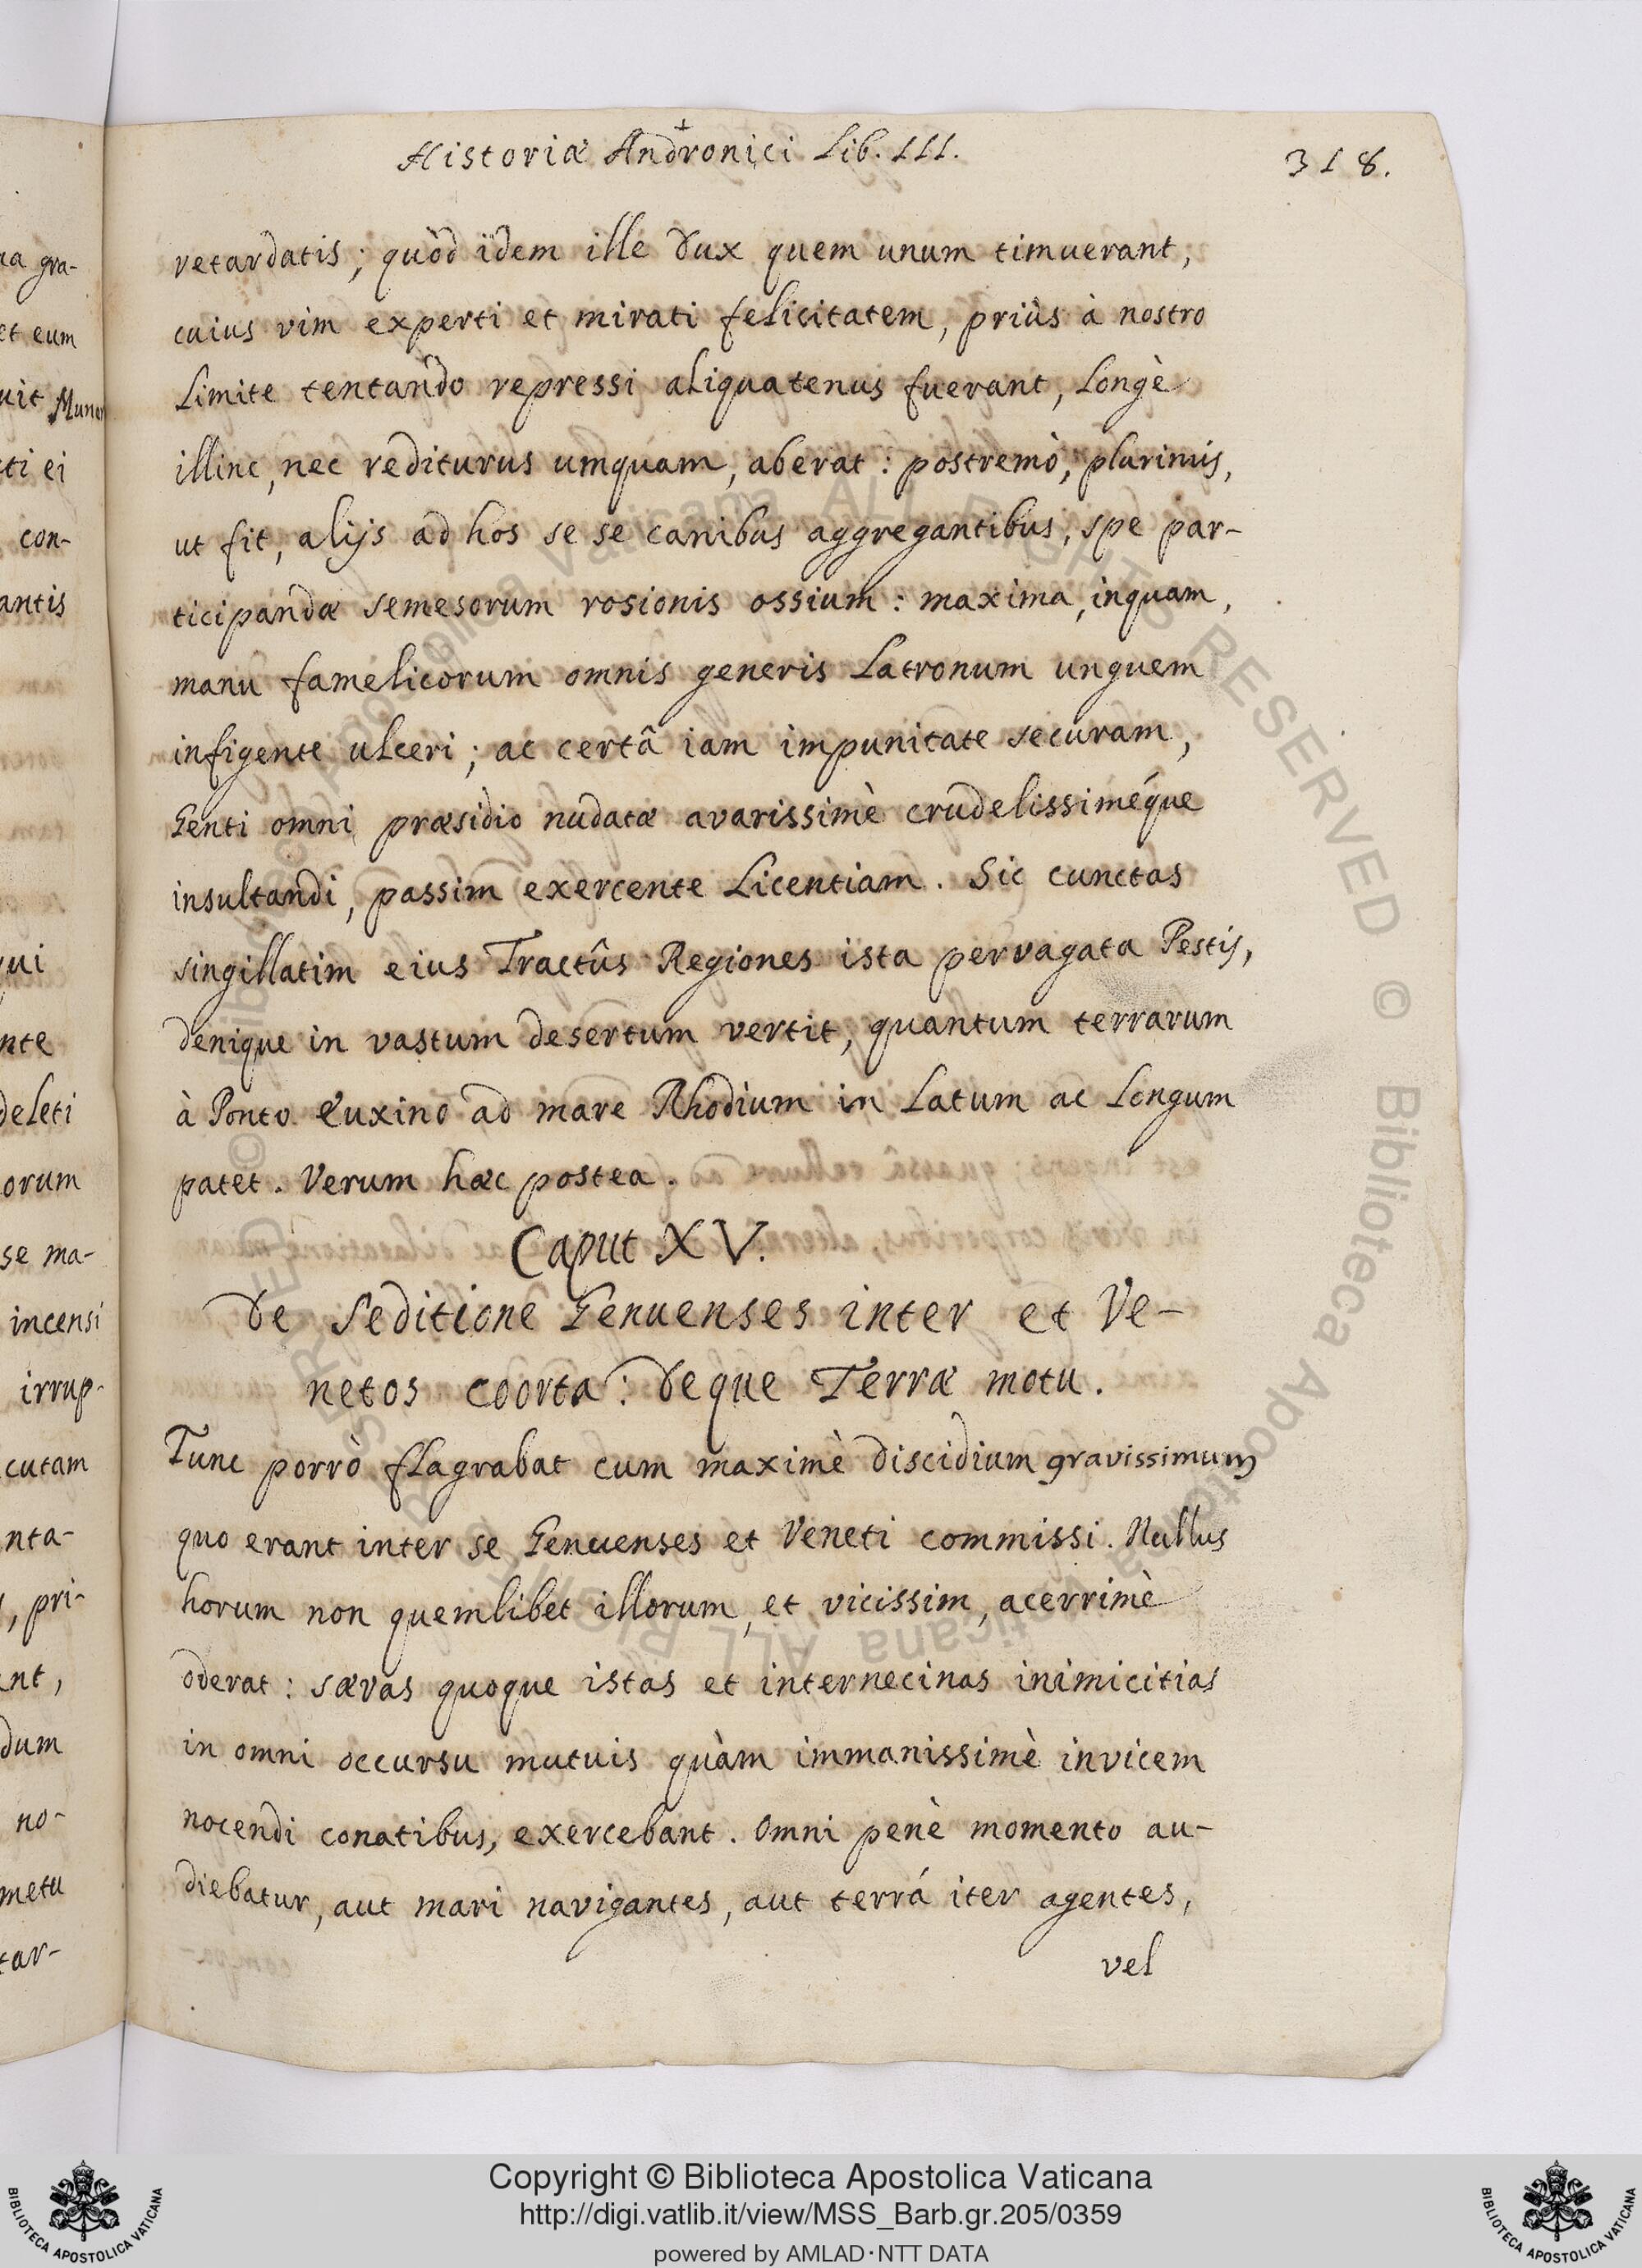 Historiæ Andronici Lib. III.
318.
retardatis; quòd idem ille Dux quem unum timuerant,
cuius vim experti et mirati felicitatem, priùs à nostro
Limite tentando repressi aliquatenus fuerant, Longè
illinc, nec rediturus umquam, aberat: postremò, plurimis,
ut fit, alijs ad hos se se canibus aggregantibus, spe par-
ticipandæ semesorum rosionis ossium: maxima, inquam,
manu famelicorum omnis generis Latronum unguem
infigente ulceri; ac certâ iam impunitate securam,
Genti omni præsidio nudatæ avarissimè crudelissiméque
insultandi, passim exercente Licentiam. Sic cunctas
singillatim eius Tractûs Regiones ista pervagata Pestis,
denique in vastum desertum vertit, quantum terrarum
à Ponto Euxino ad mare Rhodium in Latum ac Longum
patet. Verum hæc postea.
Caput XV.
De Seditione Genuenses inter et Ve-
netos coorta: Deque Terræ motu.
Tunc porrò flagrabat cum maximè discidium gravissimum
quo erant inter se Genuenses et Veneti commissi. Nullus
horum non quemlibet illorum, et vicissim, acerrimè
oderat: sævas quoque istas et internecinas inimicitias
in omni occursu mutuis quàm immanissimè invicem
nocendi conatibus, exercebant. Omni penè momento au-
diebatur, aut mari navigantes, aut terrá iter agentes,
vel
ua gra-
et eum
uit Mun
cti ei
con-
antis
qui
nte
deleti
orum
se ma-
incensi
irrup-
cutam
nta-
, pri-
ant,
dum
no-
metu
tar-
Copyright © Biblioteca Apostolica Vaticana
http://digi.vatlib.it/view/MSS_Barb.gr.205/0359
powered by AMLAD·NTT DATA
BIBLIOTECA APOSTOLICA VATICANA
BIBLIOTECA APOSTOLICA VATICANA